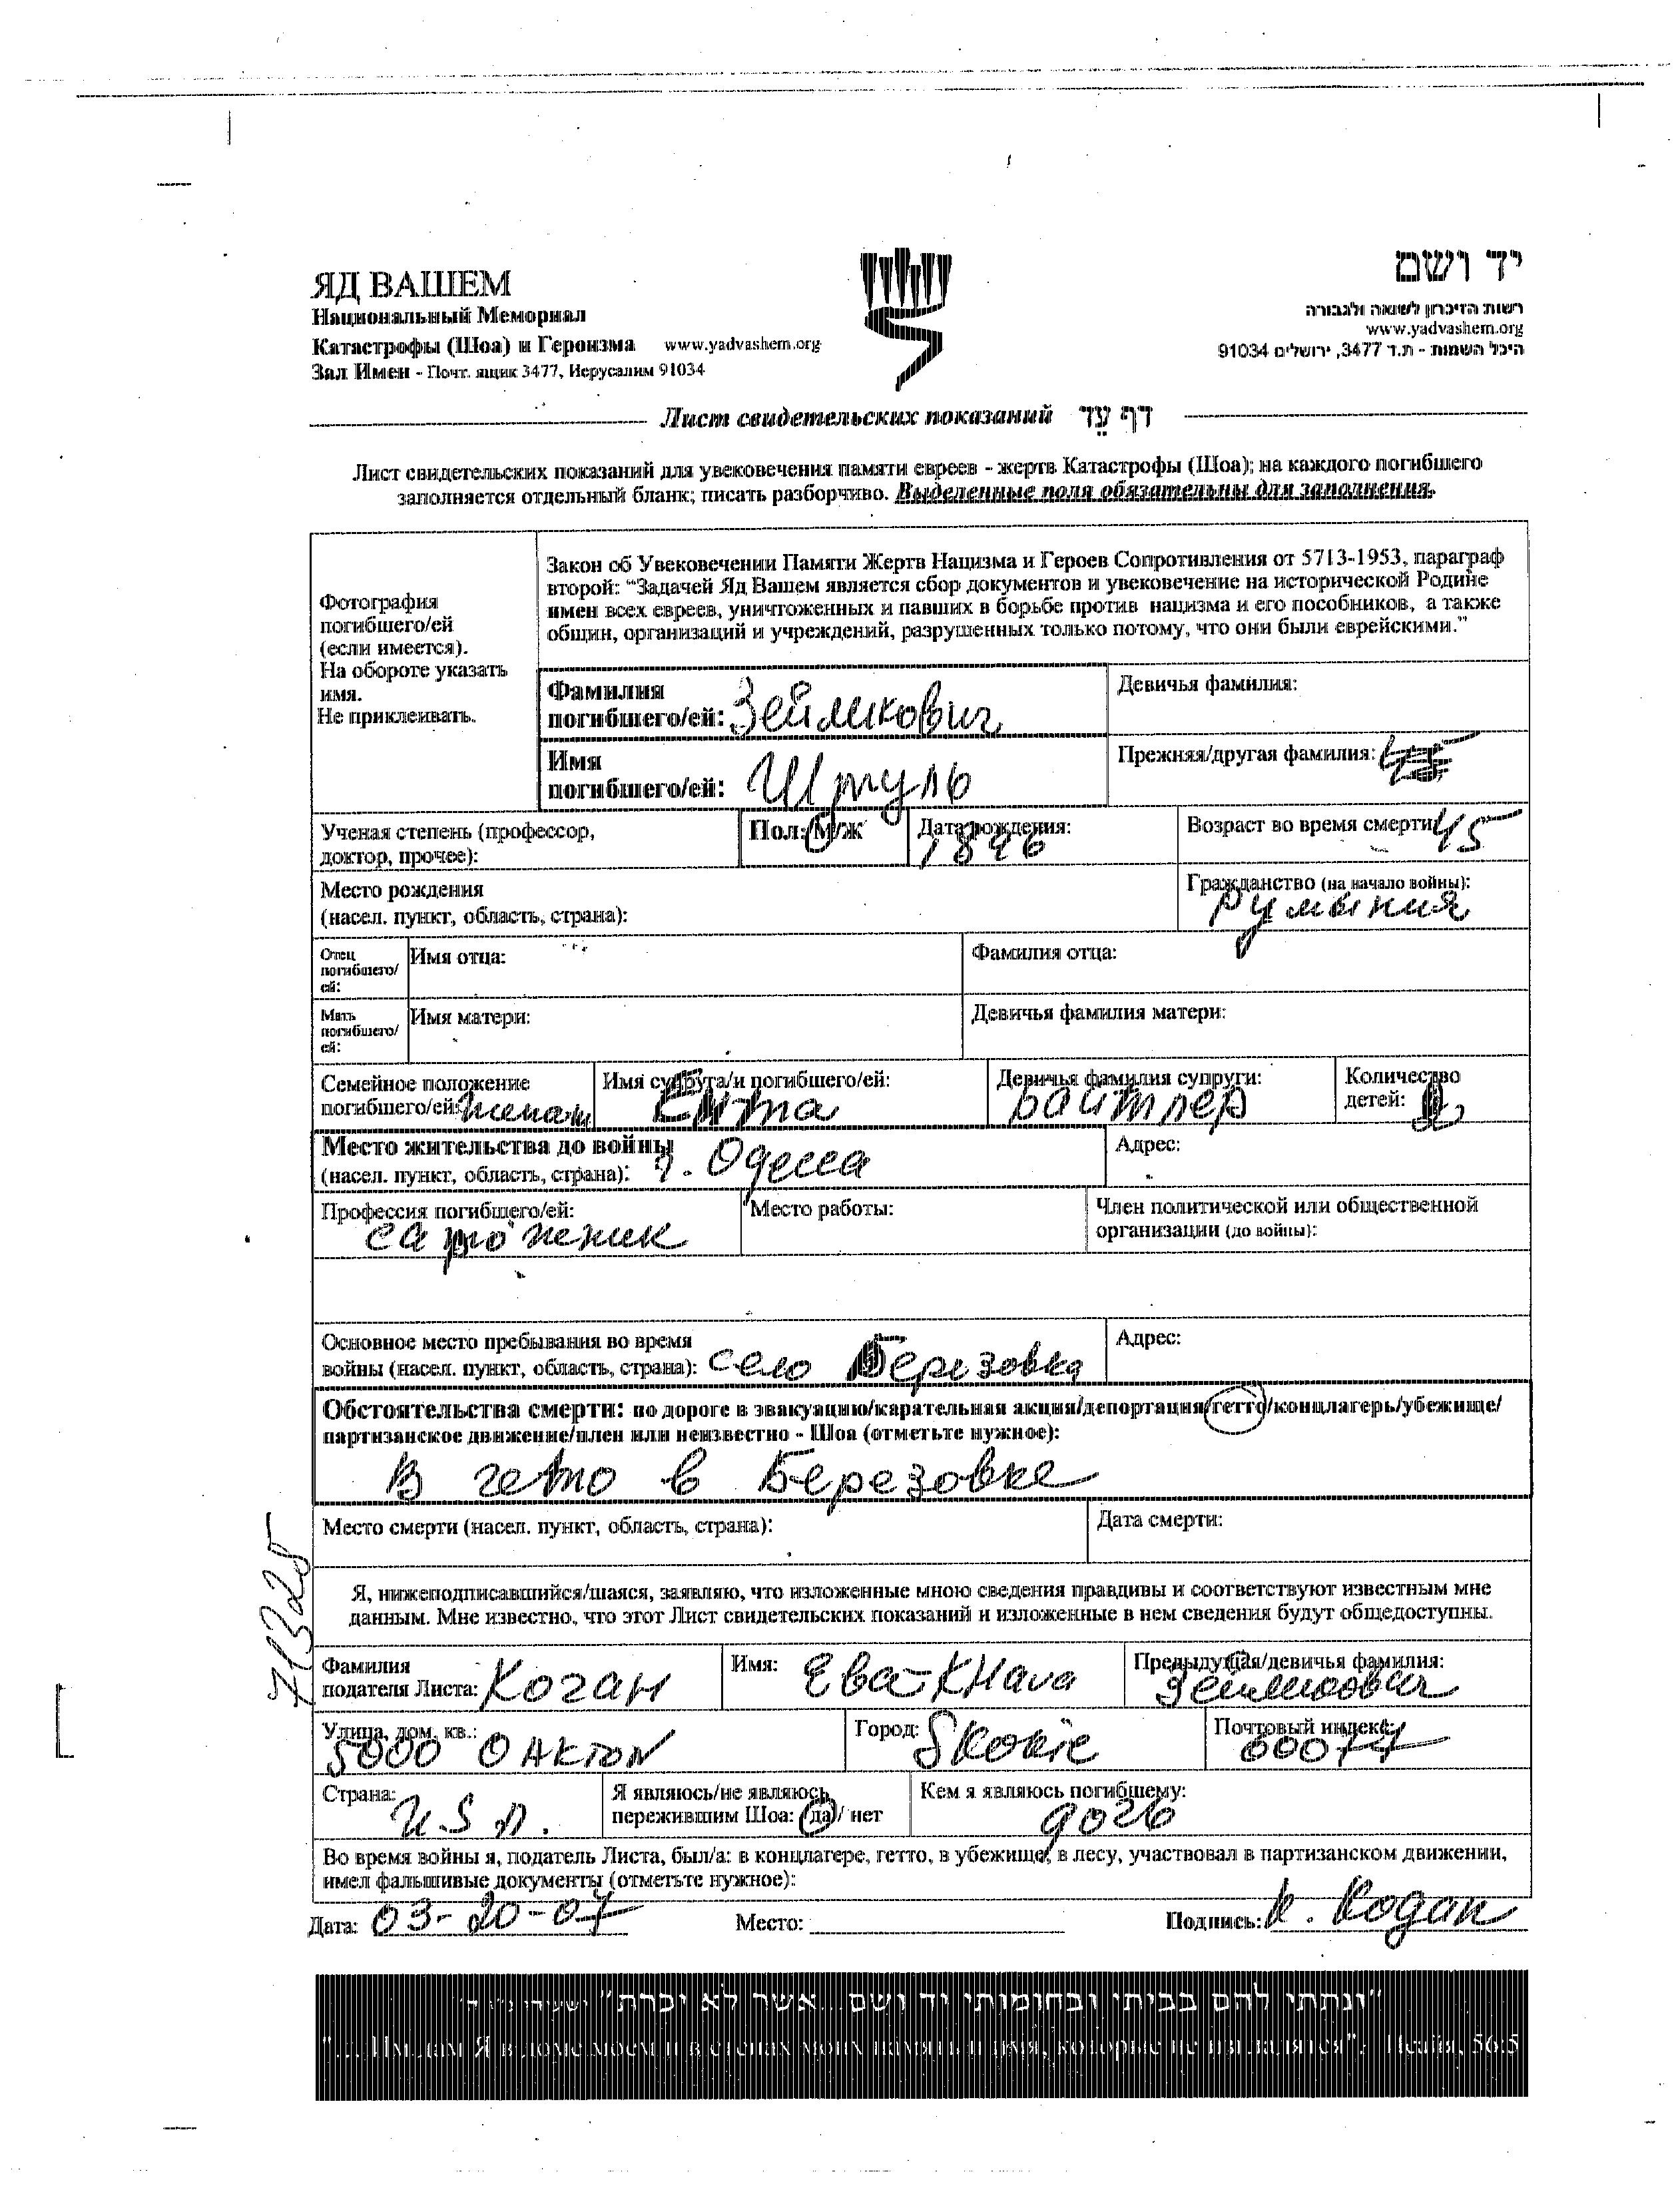 ЯД ВАШЕМ
Национальный Мемориал
Катастрофы (Шоа) и Героизма www.yadvashem.org
Зал Имен - Почт. ящик 3477, Иерусалим 91034
יד ושם
רשות הזיכרון לשואה ולגבורה
www.yadvashem.org
היכל השמות - ת.ד 3477, ירושלים 91034
Лист свидетельских показаний דף עֵד
Лист свидетельских показаний для увековечения памяти евреев - жертв Катастрофы (Шоа); на каждого погибшего
заполняется отдельный бланк; писать разборчиво. Выделенные поля обязательны для заполнения.
Фотография
погибшего/ей
(если имеется).
На обороте указать
имя.
Не приклеивать.
Закон об Увековечении Памяти Жертв Нацизма и Героев Сопротивления от 5713-1953, параграф
второй: “Задачей Яд Вашем является сбор документов и увековечение на исторической Родине
имен всех евреев, уничтоженных и павших в борьбе против нацизма и его пособников, а также
общин, организаций и учреждений, разрушенных только потому, что они были еврейскими.”
Фамилия
погибшего/ей: Зейликович
Девичья фамилия:
Имя
погибшего/ей: Шмуль
Прежняя/другая фамилия:
Ученая степень (профессор,
доктор, прочее):
Пол: М/Ж
Дата рождения:
1896
Возраст во время смерти: 45
Место рождения
(насел. пункт, область, страна):
Гражданство (на начало войны):
Румыния
Отец
погибшего/
ей:
Имя отца:
Фамилия отца:
Мать
погибшего/
ей:
Имя матери:
Девичья фамилия матери:
Семейное положение
погибшего/ей: женат
Имя супруга/и погибшего/ей:
Ента
Девичья фамилия супруги:
Ройтлер
Количество
детей: 2
Место жительства до войны
(насел. пункт, область, страна): г. Одесса
Адрес:
Профессия погибшего/ей:
сапожник
Место работы:
Член политической или общественной
организации (до войны):
Основное место пребывания во время
войны (насел. пункт, область, страна): село Березовка
Адрес:
Обстоятельства смерти: по дороге в эвакуацию/карательная акция/депортация/гетто/концлагерь/убежище/
партизанское движение/плен или неизвестно - Шоа (отметьте нужное):
В гетто в Березовке
Место смерти (насел. пункт, область, страна):
Дата смерти:
71325
Я, нижеподписавшийся/шаяся, заявляю, что изложенные мною сведения правдивы и соответствуют известным мне
данным. Мне известно, что этот Лист свидетельских показаний и изложенные в нем сведения будут общедоступны.
Фамилия
подателя Листа: Коган
Имя: Ева-KHava
Предыдущая/девичья фамилия:
Зейликович
Улица, дом, кв.:
5000 OAKTON
Город: Skokie
Почтовый индекс:
60077
Страна:
U.S.A.
Я являюсь/не являюсь
пережившим Шоа: да/ нет
Кем я являюсь погибшему:
дочь
Во время войны я, податель Листа, был/а: в концлагере, гетто, в убежище, в лесу, участвовал в партизанском движении,
имел фальшивые документы (отметьте нужное):
Дата: 03-20-07
Место:
Подпись: K. Kogan
"ונתתי להם בביתי ובחומותי יד ושם...אשר לא יכרת" ישעיהו נ"ו ה'
"... Им дам Я в доме моем и в стенах моих память и имя, которые не изгладятся". Исайя, 56:5